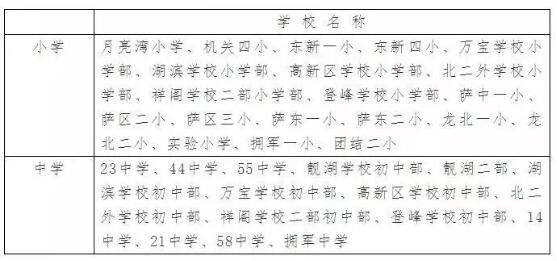 学 校 名 称
小学
月亮湾小学、机关四小、东新一小、东新四小、万宝学校小
学部、湖滨学校小学部、高新区学校小学部、北二外学校小
学部、祥阁学校二部小学部、登峰学校小学部、萨中一小、
萨区二小、萨区三小、萨东一小、萨东二小、龙北一小、龙
北二小、实验小学、拥军一小、团结二小
中学
23中学、44中学、55中学、靓湖学校初中部、靓湖二部、湖
滨学校初中部、万宝学校初中部、高新区学校初中部、北二
外学校初中部、祥阁学校二部初中部、登峰学校初中部、14
中学、21中学、58中学、拥军中学